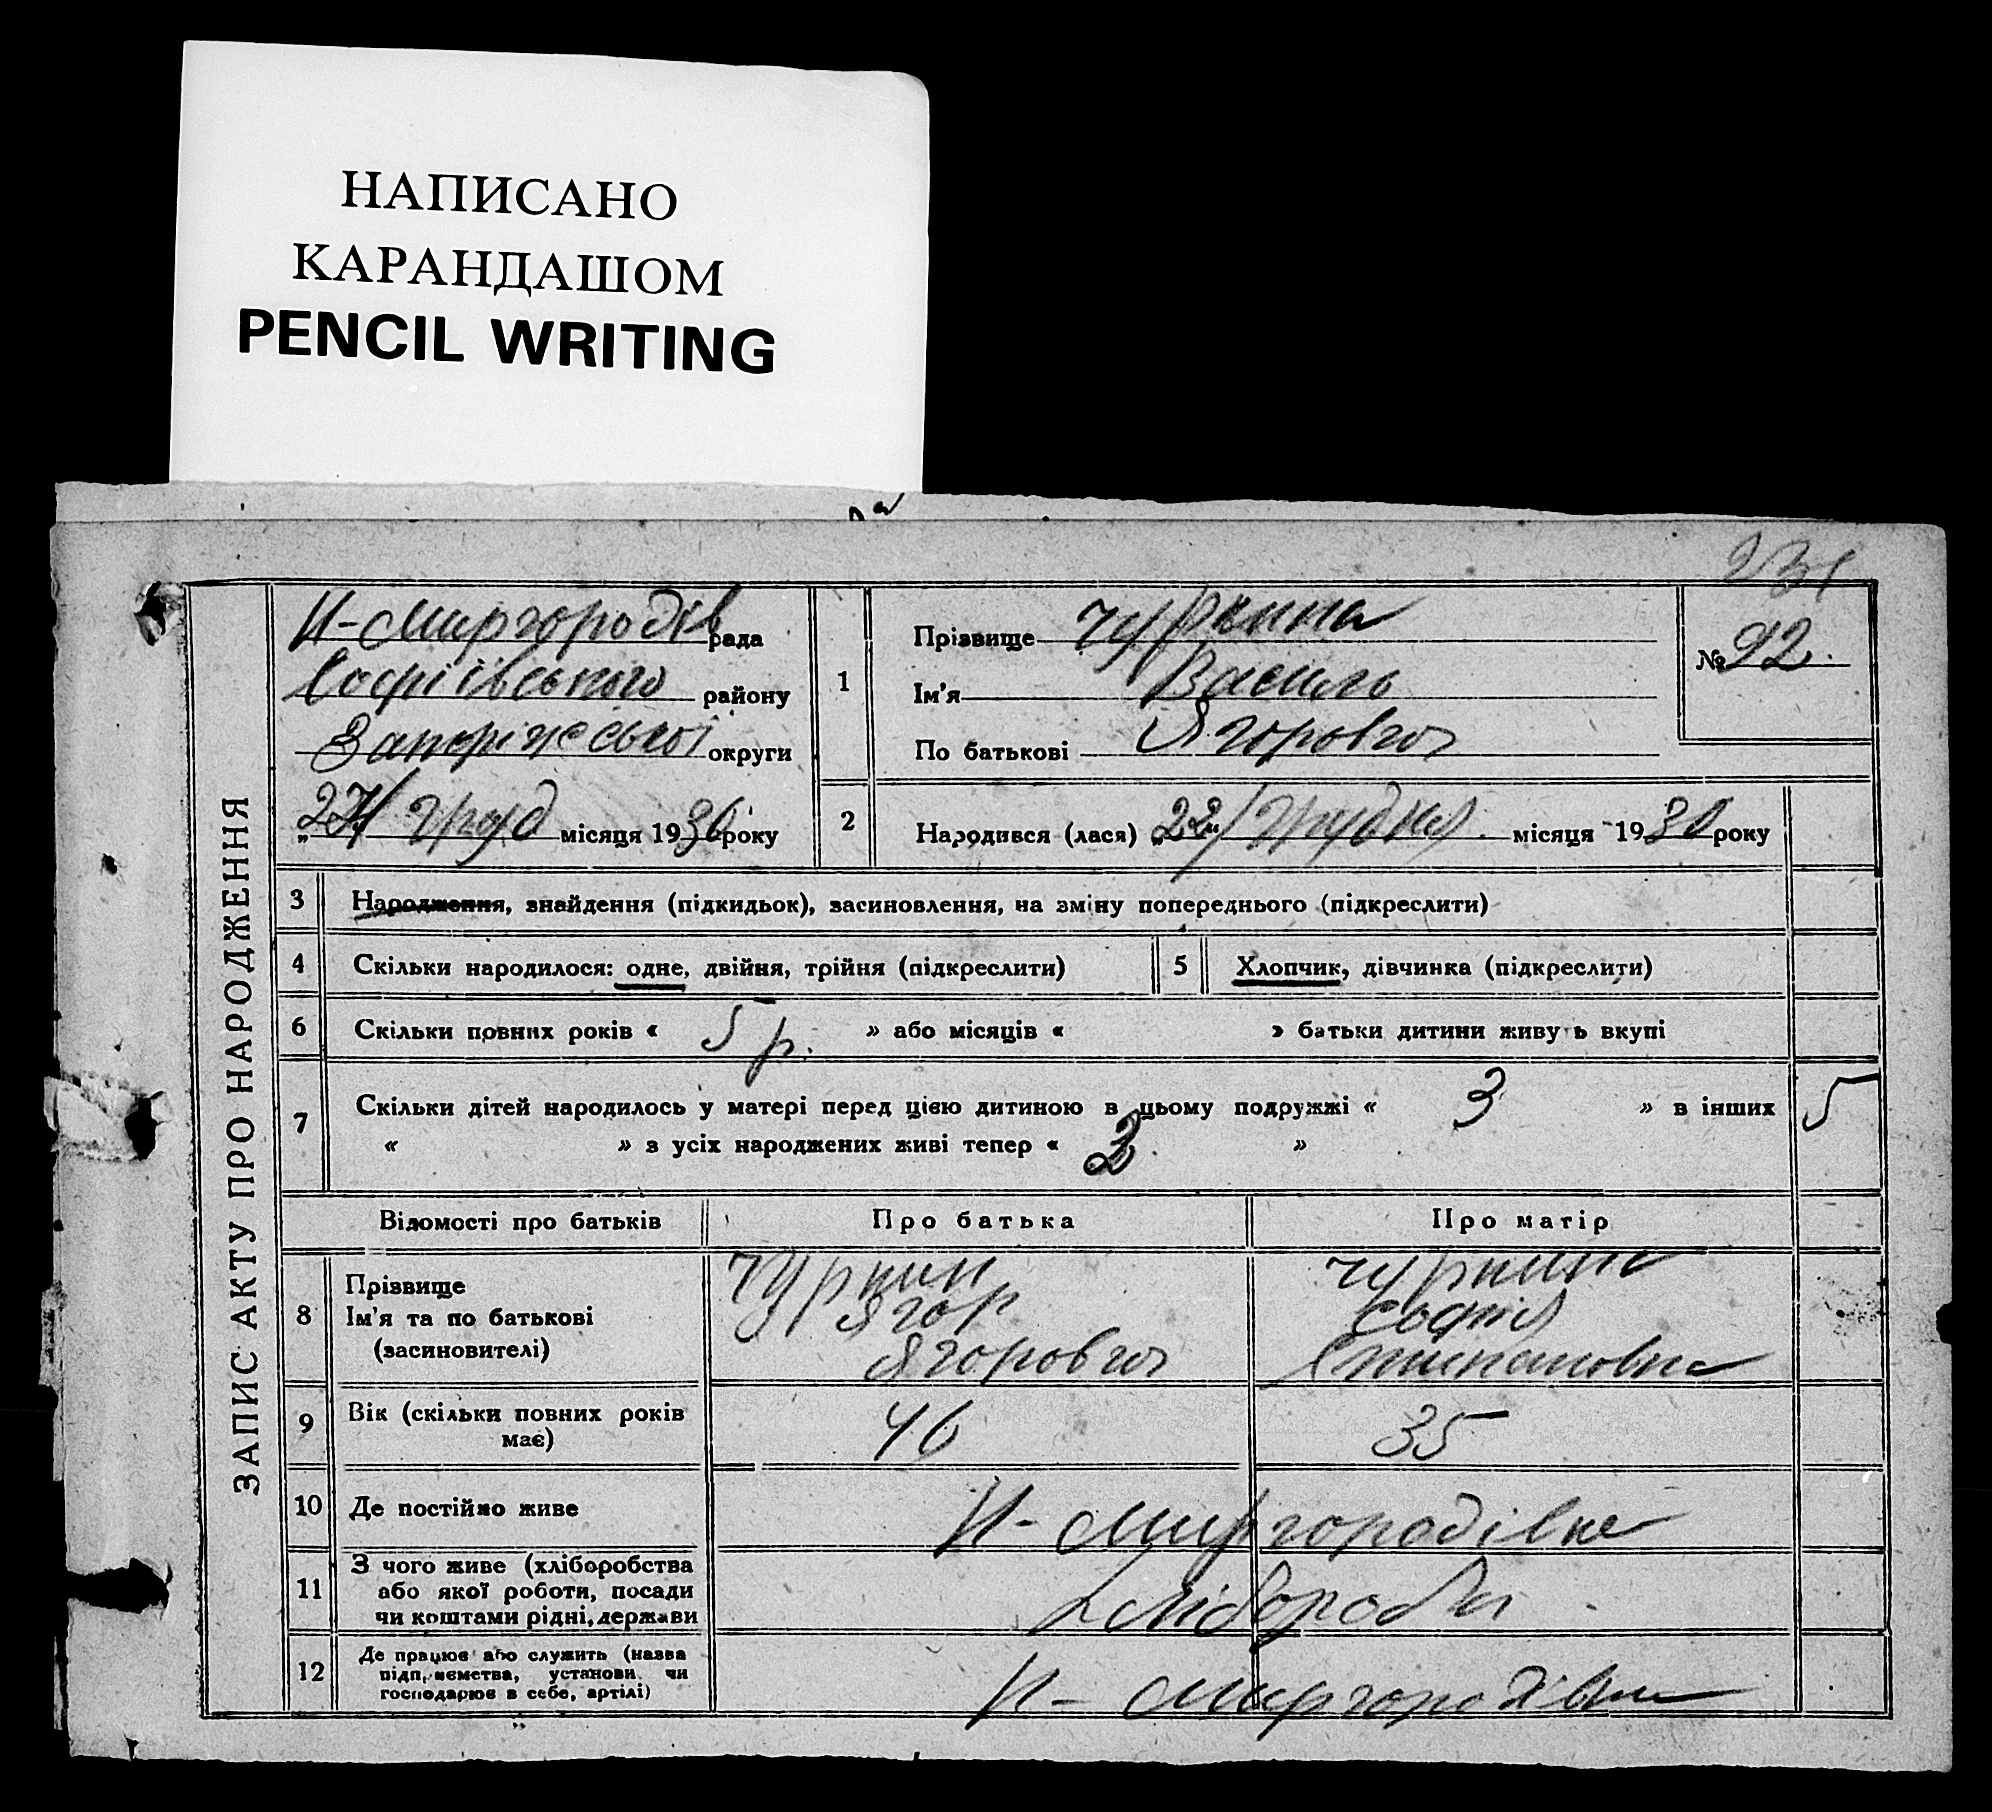 НАПИСАНО
КАРАНДАШОМ
PENCIL WRITING
231
ЗАПИС АКТУ ПРО НАРОДЖЕННЯ
Н-Миргородів рада
Софіївського району
Запоріжської округи
„24 груд місяця 1930 року
1
Прізвище Чуркина
Ім'я Василь
По батькові Ягорович
№ 92.
2
Народився (лася) „22" грудня місяця 1930 року
3 Народження, знайдення (підкидьок), засиновлення, на зміну попереднього (підкреслити)
4 Скільки народилося: одне, двійня, трійня (підкреслити)
5 Хлопчик, дівчинка (підкреслити)
6 Скільки повних років « 5 р. » або місяців « » батьки дитини живуть вкупі
7 Скільки дітей народилось у матері перед цією дитиною в цьому подружжі « 3 » в інших 5
« » з усіх народжених живі тепер « 2 »
Відомості про батьків Про батька Про матір
8 Прізвище
Ім'я та по батькові
(засиновителі)
Чуркин
Ягор
Ягорович
Чуркина
Софія
Степановна
9 Вік (скільки повних років
має)
46 35
10 Де постійно живе Н-Миргородівке
11 З чого живе (хліборобства
або якої роботи, посади
чи коштами рідні, держави
хлібороби
12 Де працює або служить (назва
підприємства, установи чи
господарює в себе, артілі)
Н-Миргородівка